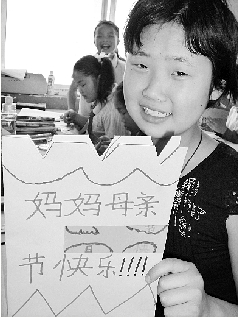 妈妈母亲
节快乐!!!!